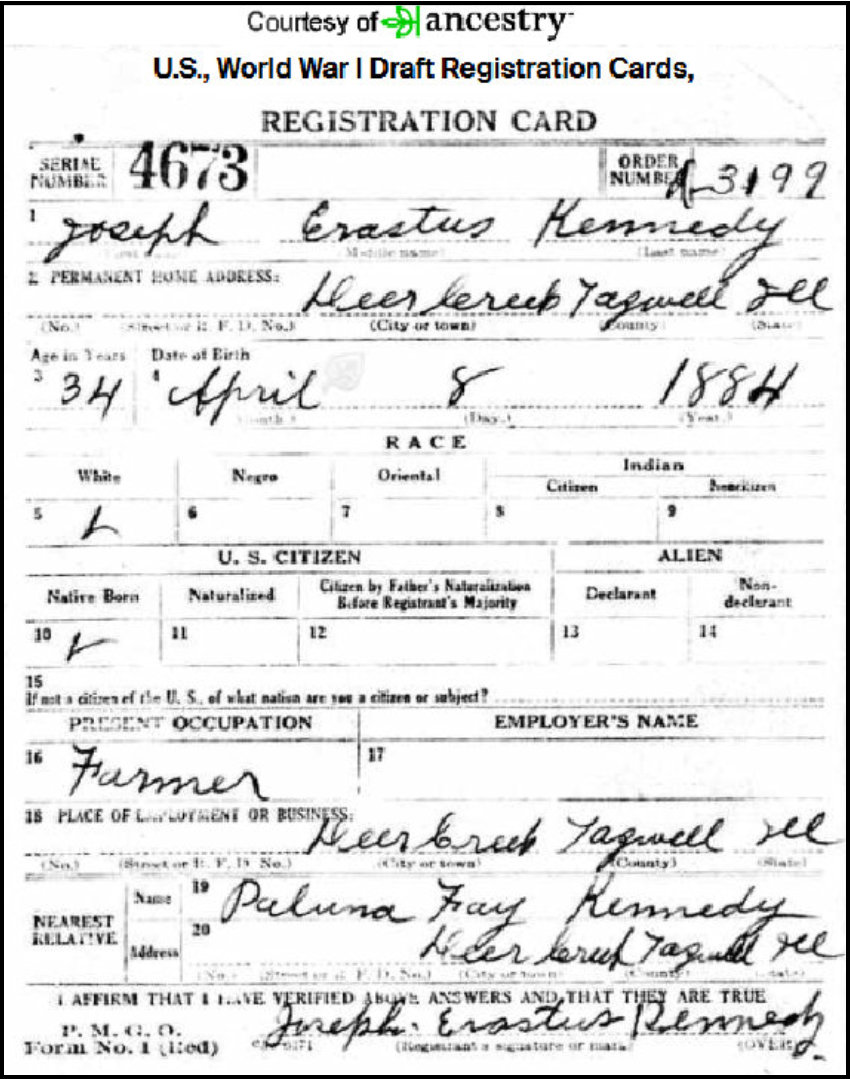 Courtesy of ancestry
U.S., World War I Draft Registration Cards,
REGISTRATION CARD
SERIAL NUMBER 4673 ORDER NUMBER A 3199
1 Joseph Erastus Kennedy
(First name) (Middle name) (Last name)
2 PERMANENT HOME ADDRESS: Deer Creek Tazwell Ill
(No.) (Street or R. F. D. No.) (City or town) (County) (State)
Age in Years Date of Birth
3 34 4 April 8 1884
(Month.) (Day.) (Year.)
RACE
White Negro Oriental Indian
Citizen Noncitizen
5 6 7 8 9
U. S. CITIZEN ALIEN
Native Born Naturalized Citizen by Father's Naturalization Before Registrant's Majority Declarant Non-declarant
10 11 12 13 14
15
If not a citizen of the U. S., of what nation are you a citizen or subject?
PRESENT OCCUPATION EMPLOYER'S NAME
16 Farmer 17
18 PLACE OF EMPLOYMENT OR BUSINESS:
Deer Creek Tazwell Ill
(No.) (Street or R. F. D. No.) (City or town) (County) (State)
NEAREST RELATIVE Name 19 Paluna Fay Kennedy
Address 20 Deer Creek Tazwell Ill
(No.) (Street or R. F. D. No.) (City or town) (County) (State)
I AFFIRM THAT I HAVE VERIFIED ABOVE ANSWERS AND THAT THEY ARE TRUE
P. M. G. O.
Form No. 1 (Red) Joseph Erastus Kennedy
(Registrant's signature or mark) (OVER)